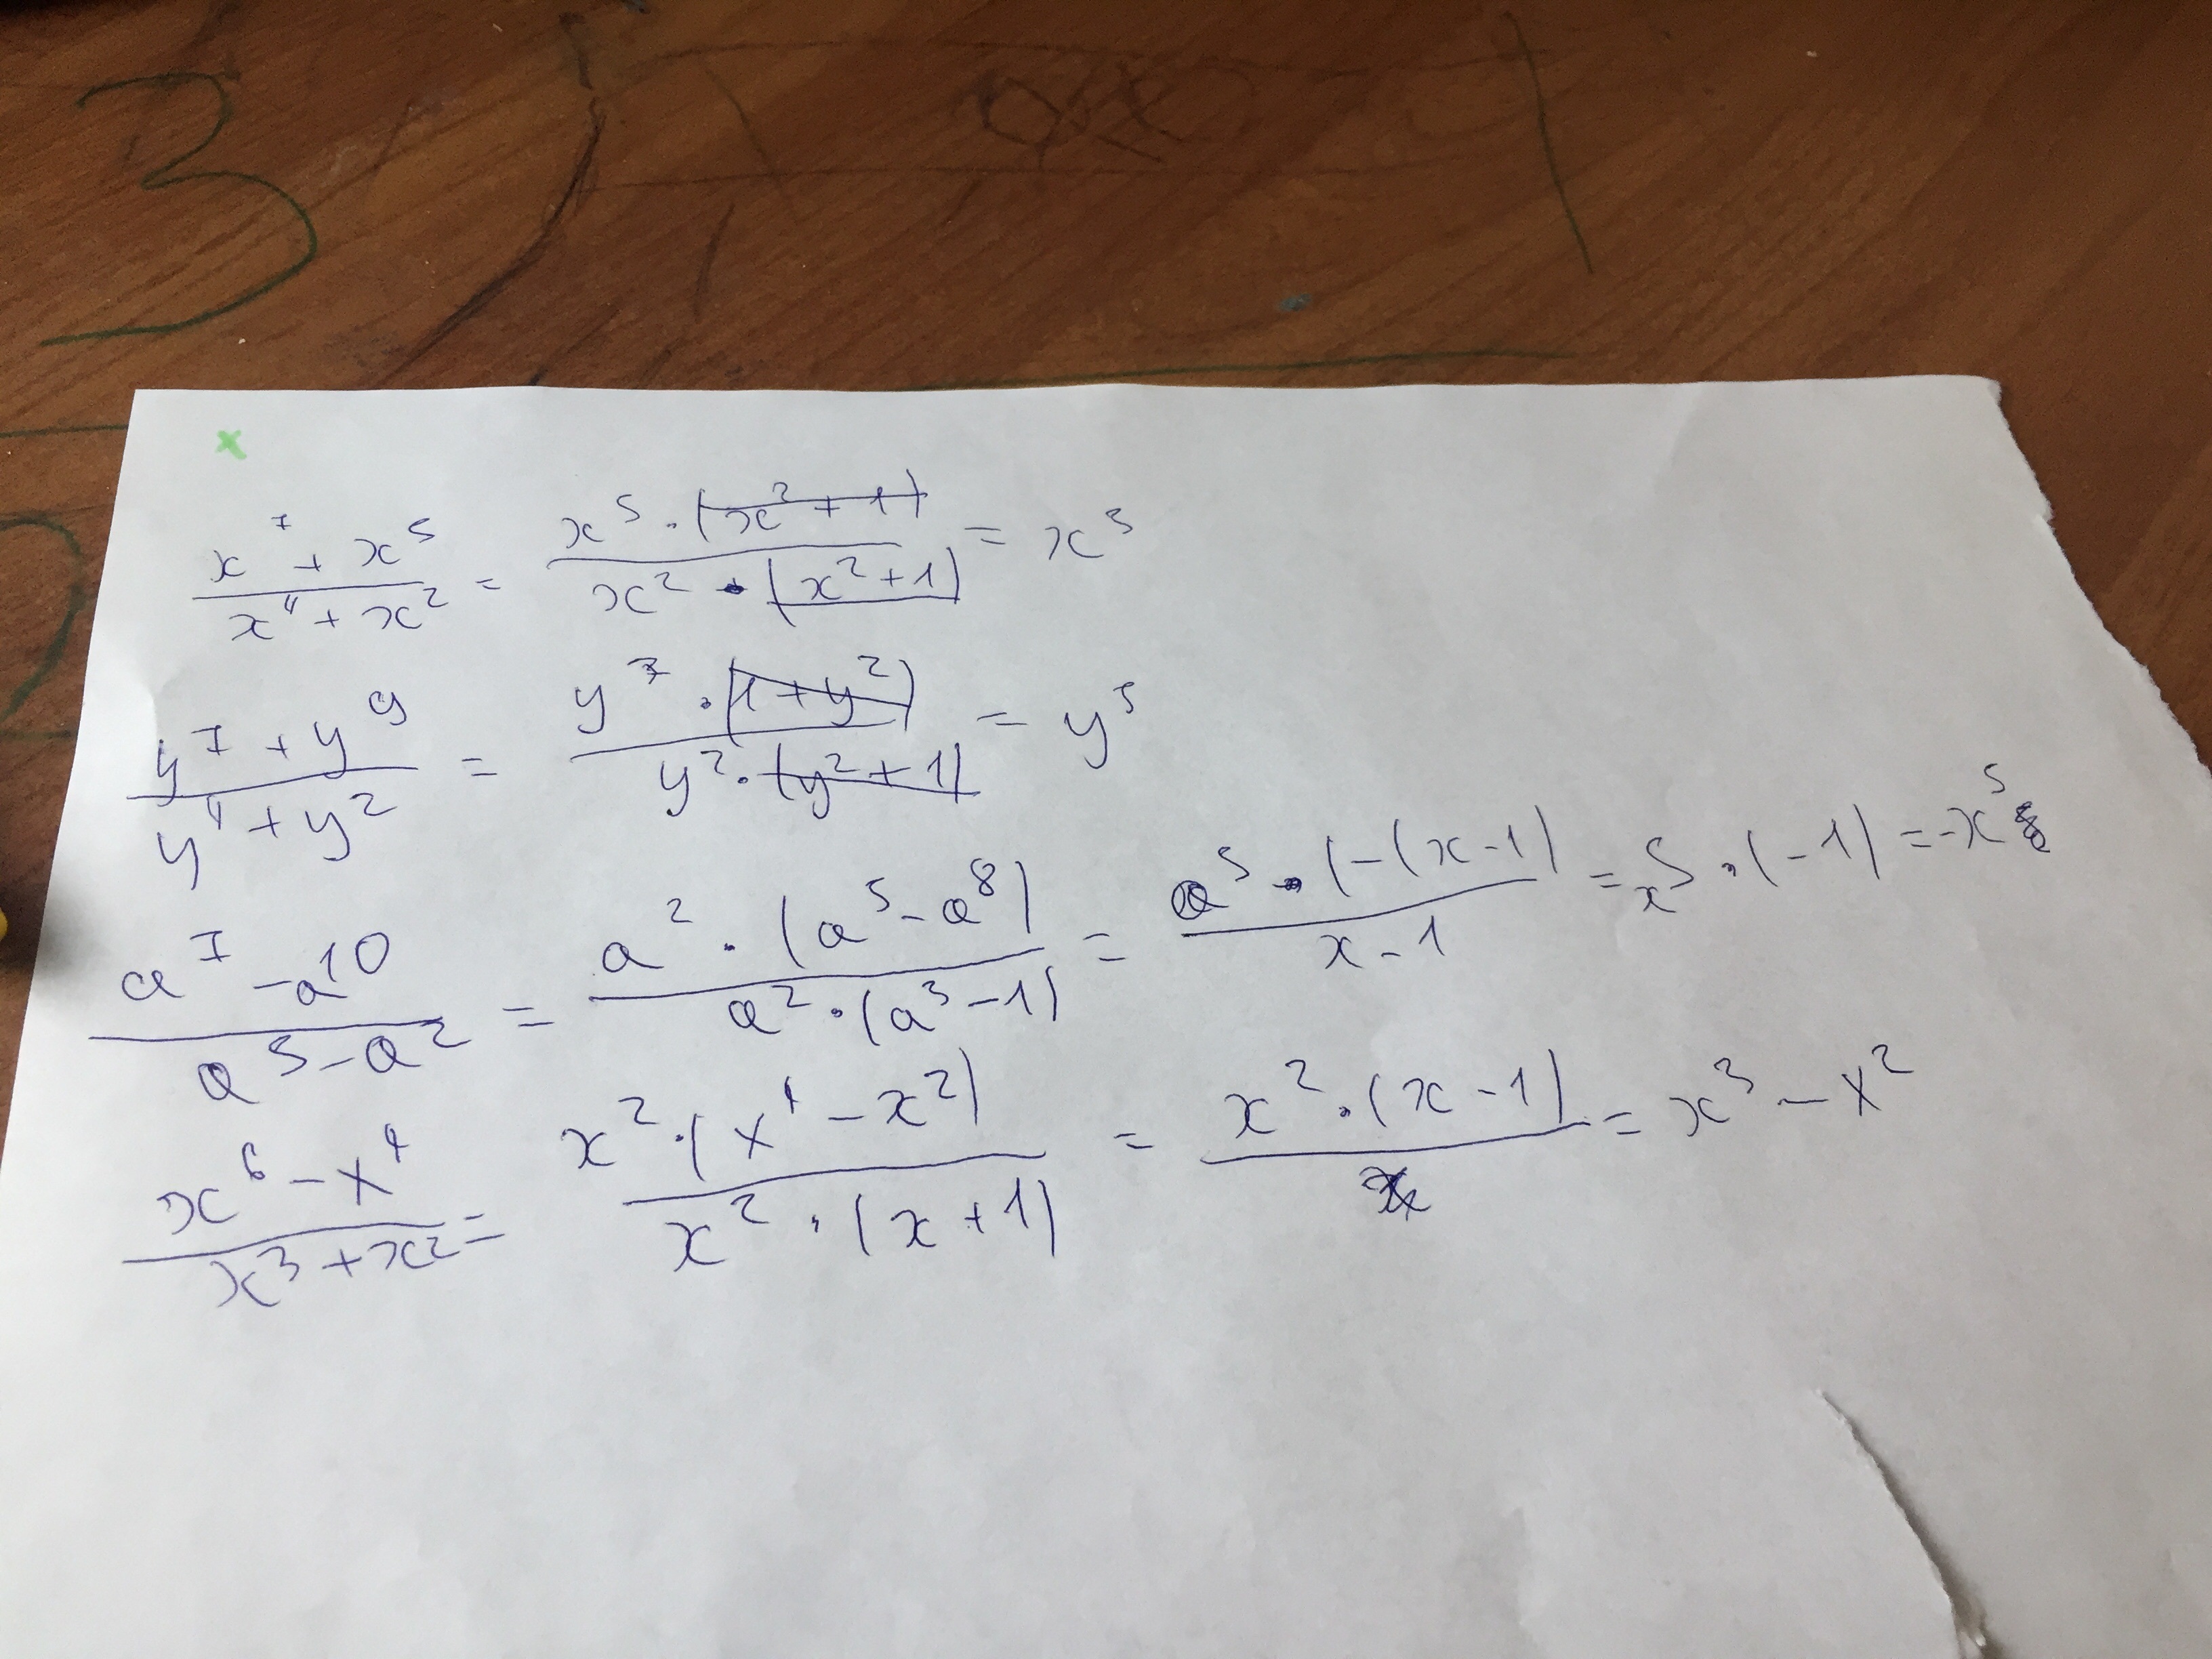 3
x
(x⁷ + x⁵)/(x⁴ + x²) = (x⁵ · (x² + 1))/(x² · (x² + 1)) = x³
(y⁷ + y⁹)/(y⁴ + y²) = (y⁷ · (1 + y²))/(y² · (y² + 1)) = y⁵
(a⁷ - a¹⁰)/(a⁵ - a²) = (a² · (a⁵ - a⁸))/(a² · (a³ - 1)) = (a⁵ · (-(x - 1))/(x - 1) = x⁵ · (-1) = -x⁵
(x⁶ - x⁴)/(x³ + x²) = (x² · (x⁴ - x²))/(x² · (x + 1)) = x² · (x - 1) = x³ - x²